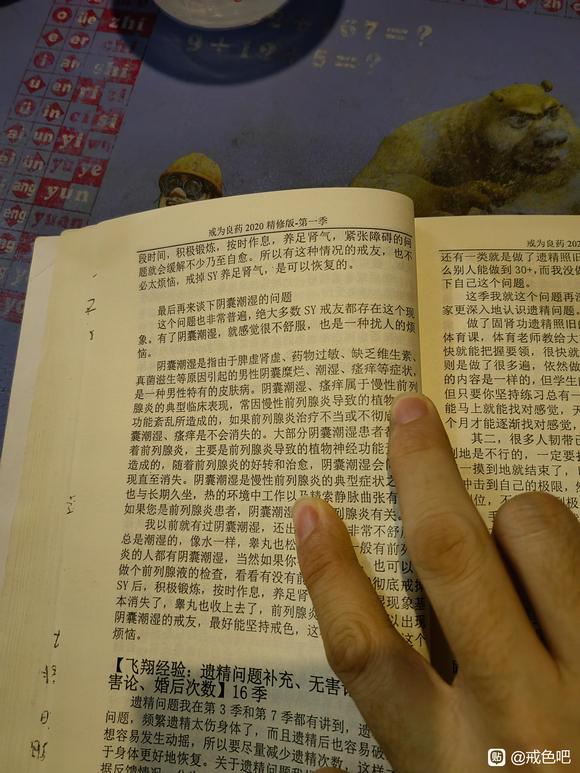 de zhi
er chi
i an shi
en ri
in ci si
ai un yi
ei yun wu
ye
ang yue
eng yun
ing yuan
67=?
9+19
5=?
戒为良药2020精修版-第一季
段时间，积极锻炼，按时作息，养足肾气，紧张障碍的问
题就会缓解不少乃至自愈。所以有这种情况的戒友，也不
必太烦恼，戒掉SY养足肾气，是可以恢复的。
最后再来谈下阴囊潮湿的问题
这个问题也非常普遍，绝大多数SY戒友都存在这个现
象。有了阴囊潮湿，就感觉很不舒服，也是一种扰人的烦
恼。
阴囊潮湿是指由于脾虚肾虚、药物过敏、缺乏维生素、
真菌滋生等原因引起的男性阴囊糜烂、潮湿、瘙痒等症状，
是一种男性特有的皮肤病。阴囊潮湿、瘙痒属于慢性前列
腺炎的典型临床表现，常因慢性前列腺炎导致的植物
功能紊乱所造成的，如果前列腺炎治疗不当或不彻底
囊潮湿、瘙痒是不会消失的。大部分阴囊潮湿患者
着前列腺炎，主要是前列腺炎导致的植物神经功能
造成的，随着前列腺炎的好转和治愈，阴囊潮湿会
现直至消失。阴囊潮湿是慢性前列腺炎的典型症状之
也与长期久坐，热的环境中工作以及精索静脉曲张有
如果您是前列腺炎患者，阴囊潮湿 列腺炎有关。
我以前就有过阴囊潮湿，还出 非常不舒
总是潮湿的，像水一样，睾丸也松 一般有前列
炎的人都有阴囊潮湿，当然如果你 也可以
做个前列腺液的检查，看看有没有前 彻底戒掉
SY后，积极锻炼，按时作息，养足肾 现象基
本消失了，睾丸也收上去了，前列腺炎 以出现
阴囊潮湿的戒友，最好能坚持戒色，这 这个
烦恼。
【飞翔经验：遗精问题补充、无害论
害论、婚后次数】16季
遗精问题我在第3季和第7季都有讲到，遗
问题，频繁遗精太伤身体了，而且遗精后也容易破
想容易发生动摇，所以要尽量减少遗精次数，这样
于身体更好地恢复。关于遗精问题我
据反馈情况
戒为良药202
还有一类就是做了遗精照旧
么别人能做到30+，而我没做
下自己这个问题。
这季我就这个问题再深
家更深入地认识遗精问题。
做了固肾功遗精照旧
体育课，体育老师教给大
快就能把握要领，很快就
则是做了很多遍，依然做
的内容是一样的，但学生
但只要你坚持练习总有一
能马上就能找对感觉，
个月才能逐渐找对感觉，
其二，很多人韧带
到地是不行的，一定要
一摸到地就结束了，
中击到自己的极限，
位，不
贴 @戒色吧